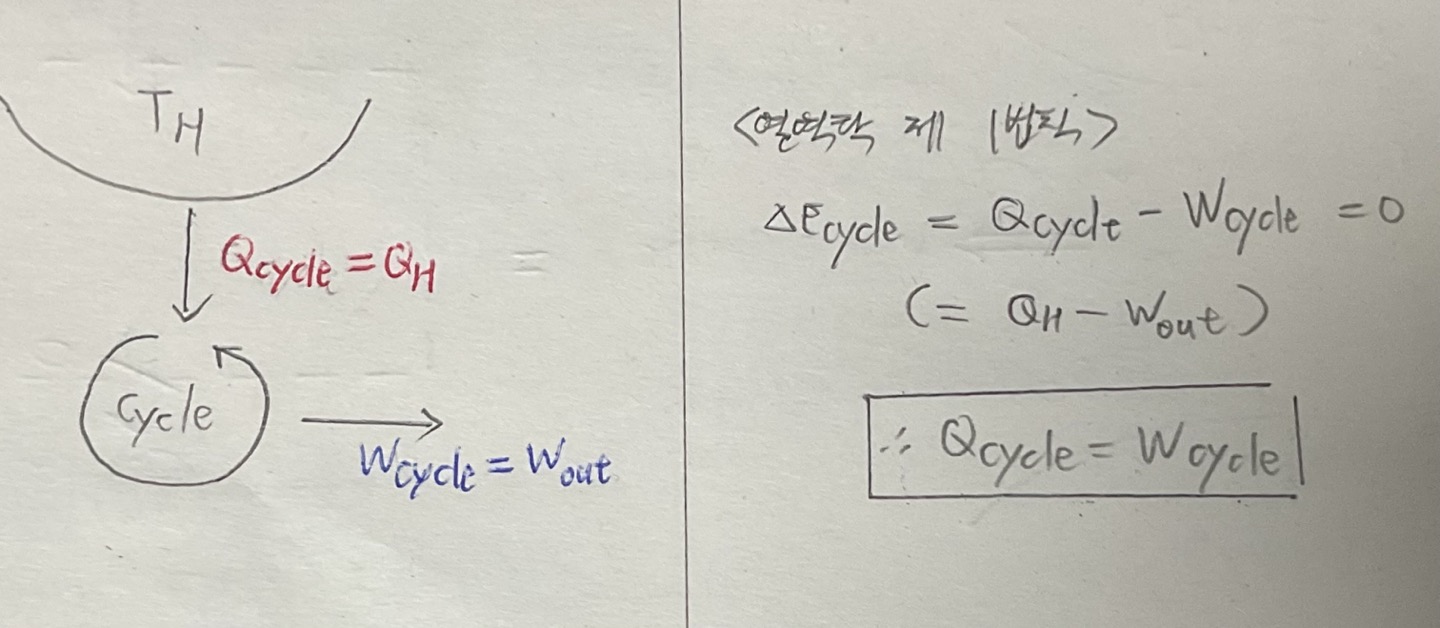 T_H
Qcycle = Q_H
Cycle
Wcycle = Wout
<열역학 제 1법칙>
ΔEcycle = Qcycle - Wcycle = 0
(= Q_H - Wout)
∴ Qcycle = Wcycle